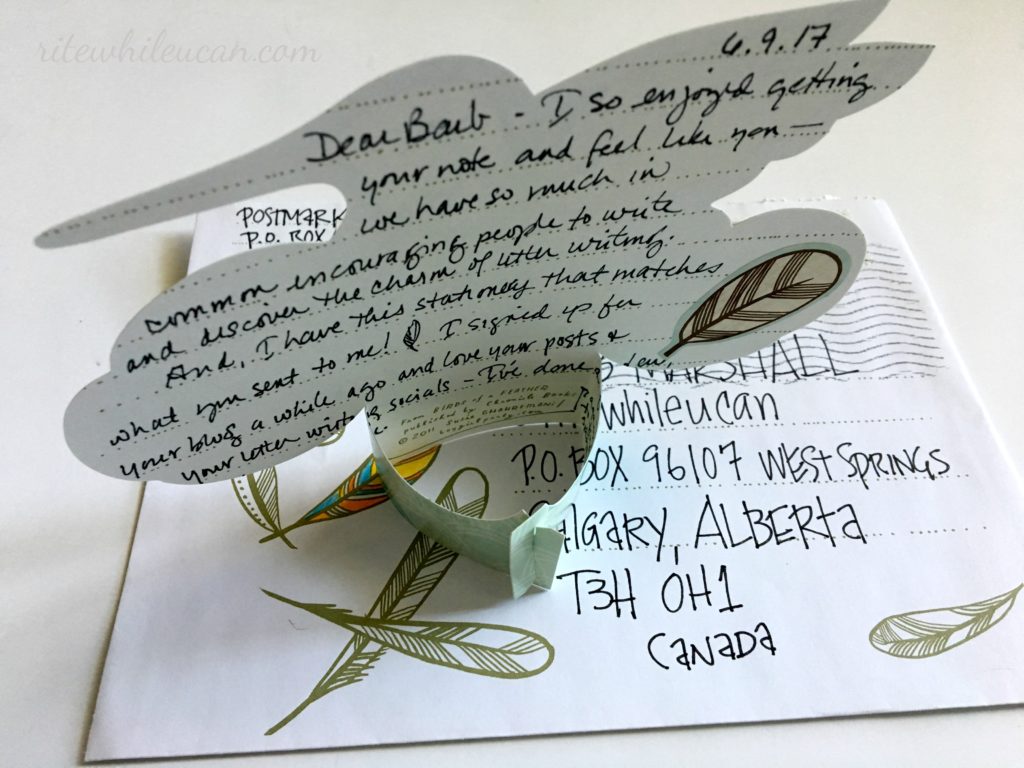 ritewhileucan.com
6.9.17
Dear Barb - I so enjoyed getting
your note and feel like you —
we have so much in
common encouraging people to write
and discover the charm of letter writing.
And, I have this stationery that matches
what you sent to me! I signed up for
your blog a while ago and love your posts &
your letter writing socials - I've done
From BIRDS of a FEATHER
published by Chronicle Books
© 2011
POSTMARK
P.O. BOX
MARSHALL
whileucan
P.O. BOX 96107 WEST SPRINGS
CALGARY, ALBERTA
T3H 0H1
CANADA